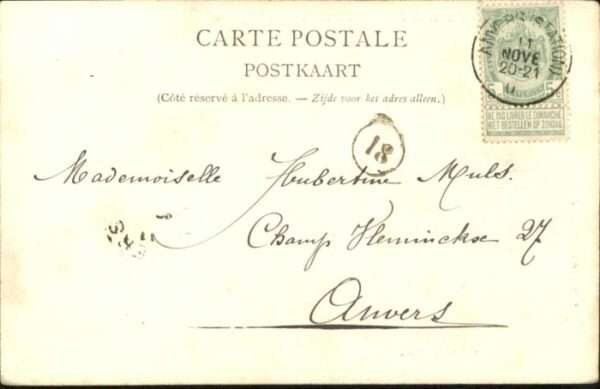 CARTE POSTALE
POSTKAART
(Côté réservé à l'adresse. — Zijde voor het adres alleen.)
ANVERS (STATION)
11
NOVE
20-21
NE PAS LIVRER LE DIMANCHE
NIET BESTELLEN OP ZONDAG
18
Mademoiselle Hubertine Muls.
Champ Vleminckse 27
Anvers